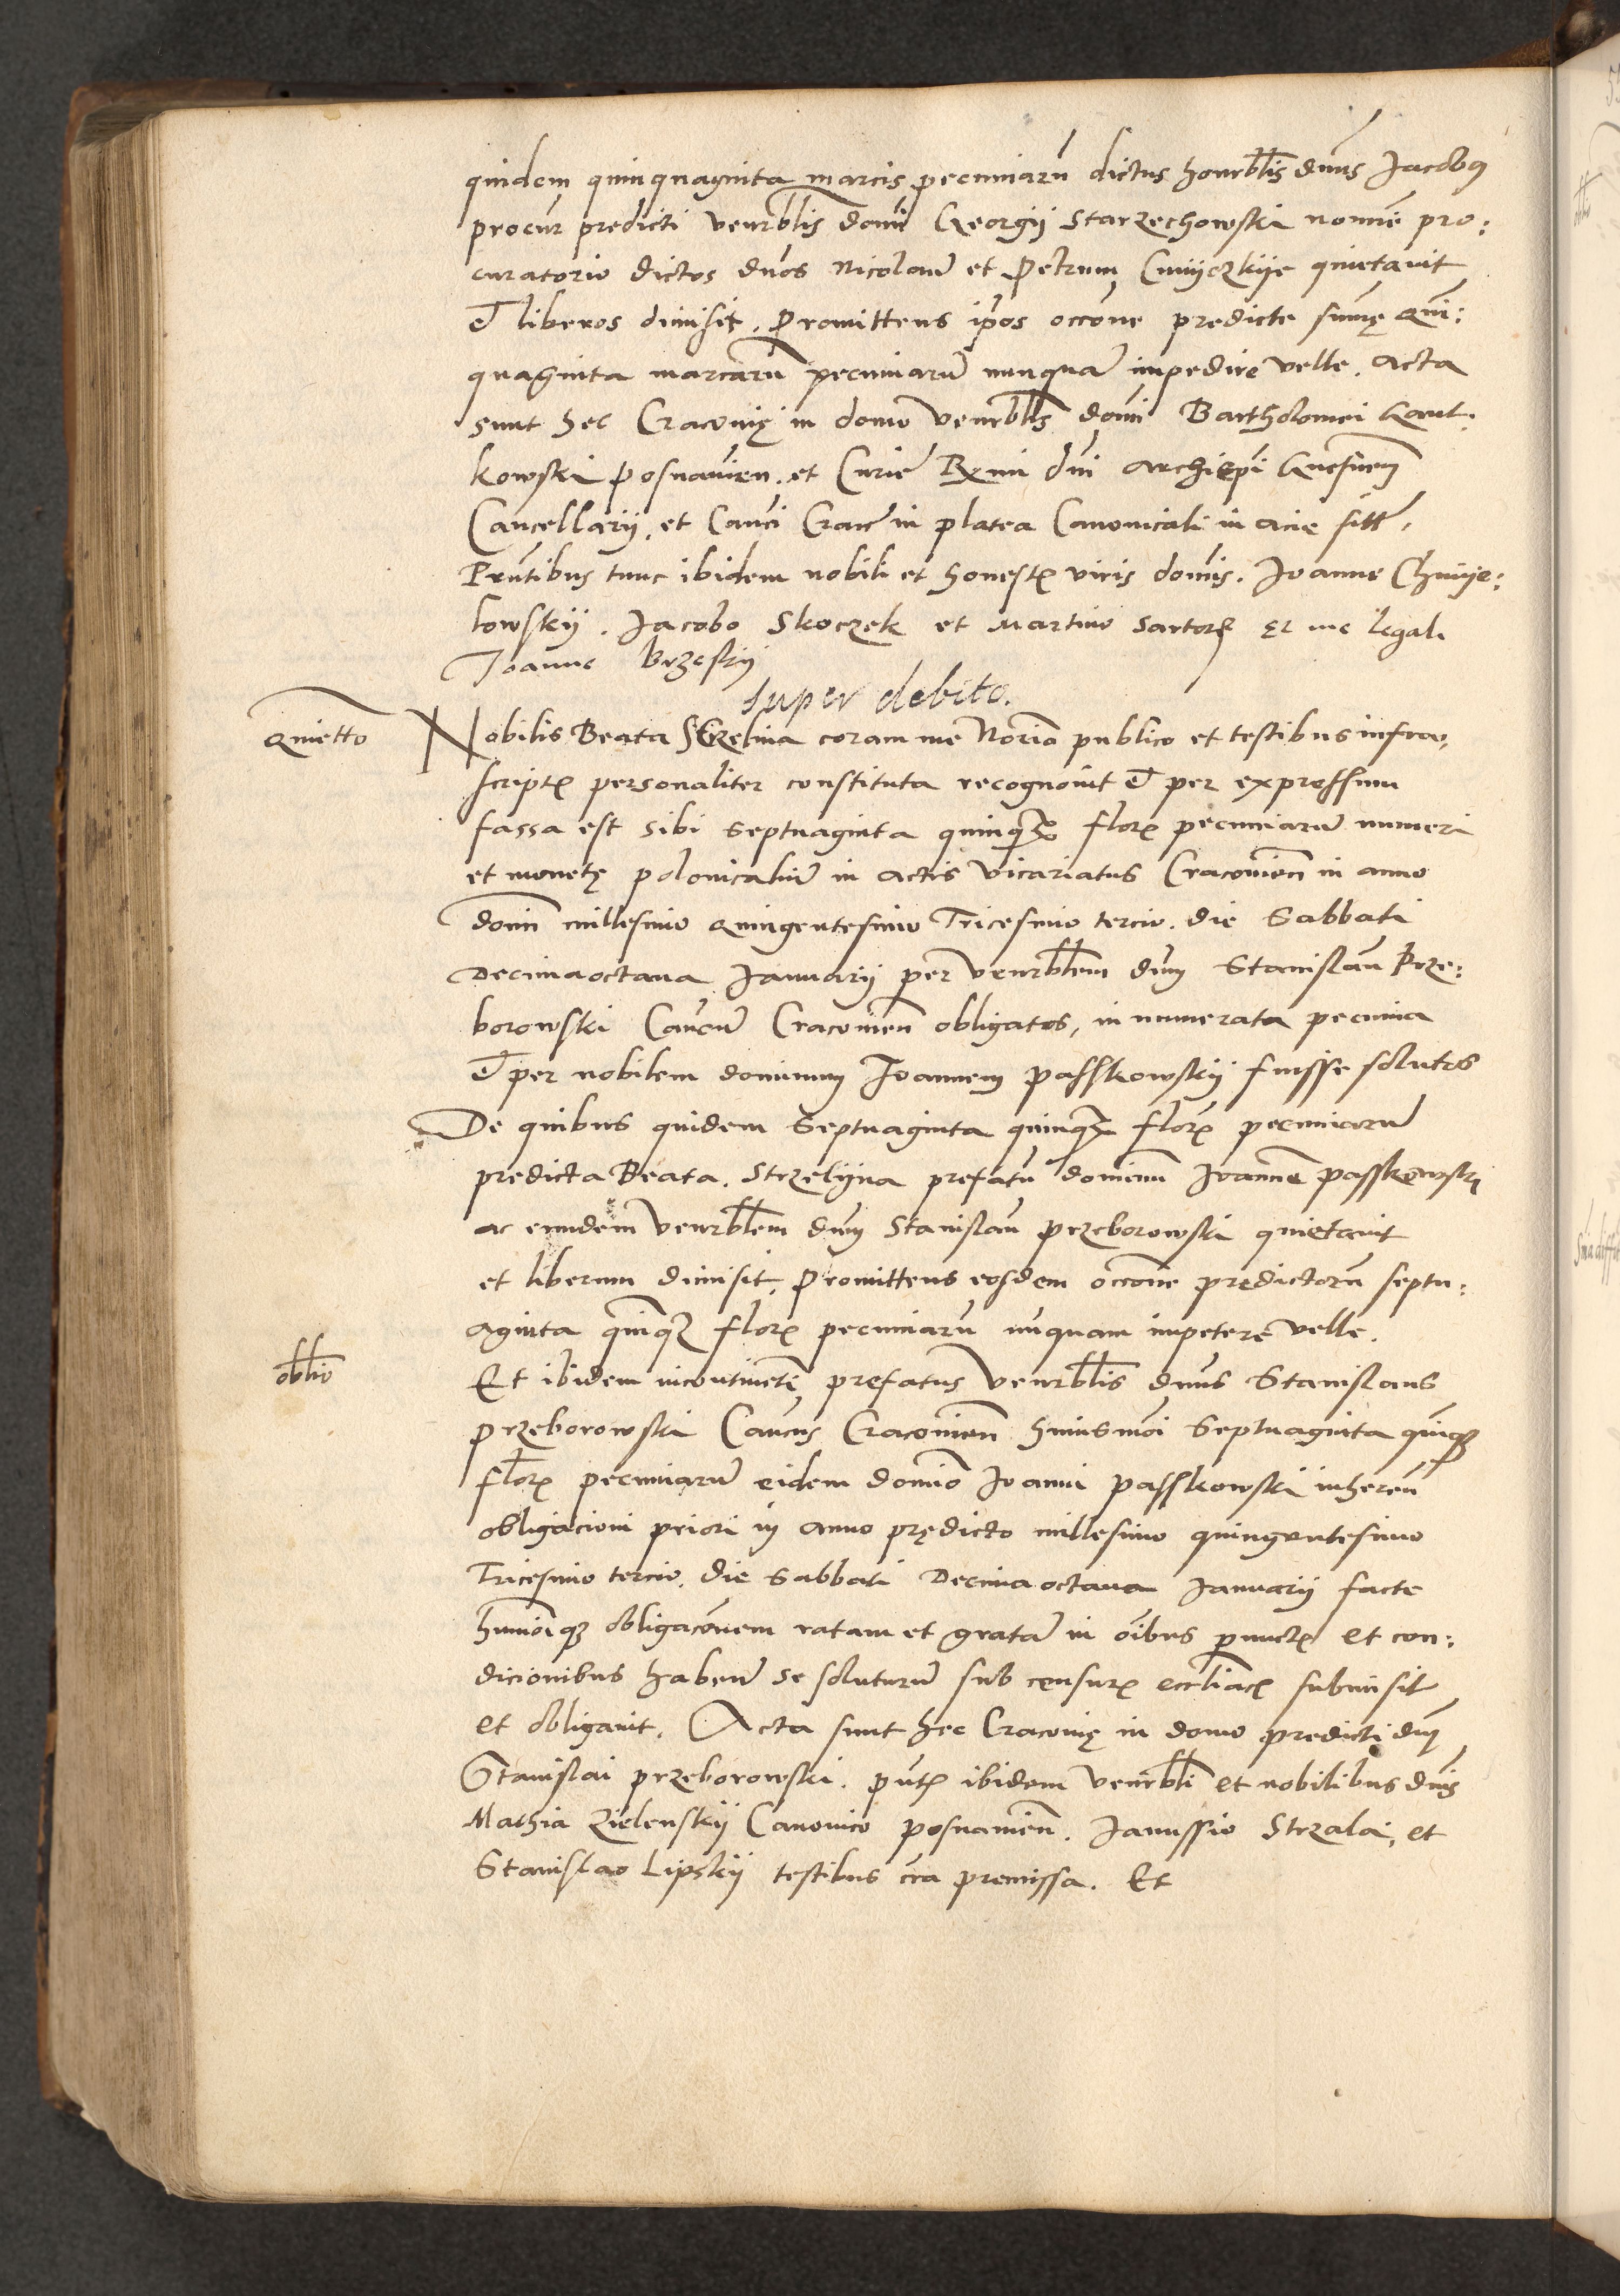 quidem quinquaginta marcis pecuniarũ dictus honorbĩlis dñus Jacobus
procur predicti venerbĩlis domĩ Georgii Starzechowski nomine pro:
curatorio dictos dños Nicolaum et Petrum Cmiyczkije quietauit
et liberos dimisit. Promittens ipos occone predicte summę quin:
quaginta marcarũ pecuniarũ nunquã impedire velle. Acta
sunt hec Cracovię in domo venerbĩlis domĩ Bartholomei Gant:
kowski Posnanien. et Curie Rxmi dni Archiepi Gnesnen
Cancellarij. et Canci Crac in platea Canonicali in acie sitt.
Prñtibus tunc ibidem nobili et honestis viris domĩs. Joanne Chmye:
lowskij. Jacobo Skoczek et Martino Sartore et me legali
Joanne Brzeskij
super debito.
Quietto
Nobilis Beata Strzelina coram me Norio publico et testibus infra,
scriptis personaliter constituta recognouit et per expressum
fassa est sibi Septuaginta quinqз floris pecuniarũ numeri
et monetę polonicaliũ in actis vicariatus Cracouien in anno
domĩ millesimo quingentesimo Tricesimo tercio. die Sabbati
Decimaoctaua Januarij per venerbĩlem dnm Stanislaũ Prze:
borowski Cancũ Cracouien obligatos, in numerata pecunia
et per nobilem dominum Joannem Passkowskij fuisse solutos
De quibus quidem Septuaginta quinqз floris pecuniarũ
predicta Beata. Strzelijna prefatũ dominũ Joannẽ Passkowski
ac eundem venerbĩlem dnm Stanislaũ Przeborowski quietauit
et liberum dimisit, Promittens eosdem occone prędictorũ septu:
aginta quinqз floris pecuniarũ nũquam impetere velle.
oblĩo
Et ibidem incontinẽti prefatus venerbĩlis dñus Stanislaus
Przeborowski Cancus Cracouien huiusmõi Septuaginta quinqз
floris pecuniarũ eidem domĩo Joanni Passkowski inherẽn
obligacioni priori in anno prędicto millesimo quingentesimo
Tricesimo tercio. die Sabbati Decimaoctaua Januarij facte
humõiqз obligacõnem ratam et gratã in oĩbus punctis et con:
dicionibus habenũ se soluturũ sub censuris ecclĩacis submisit
et obligauit. Acta sunt hec Cracovię in domo predicti dnĩ
Stanislai Przeborowski. pñtis ibidem venerbĩli et nobilibus dnĩs
Mathia Zielenskij Canonico Posnanien. Janussio Strzala, et
Stanislao Lipskij testibus cĩra premissa. Et